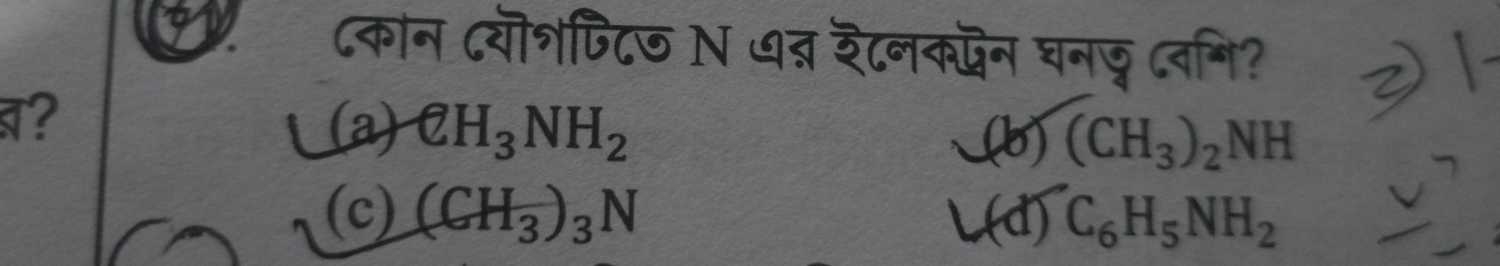 কোন যৌগটিতে N এর ইলেকট্রন ঘনত্ব বেশি?
র?
(a) CH₃NH₂ (b) (CH₃)₂NH
(c) (CH₃)₃N (d) C₆H₅NH₂